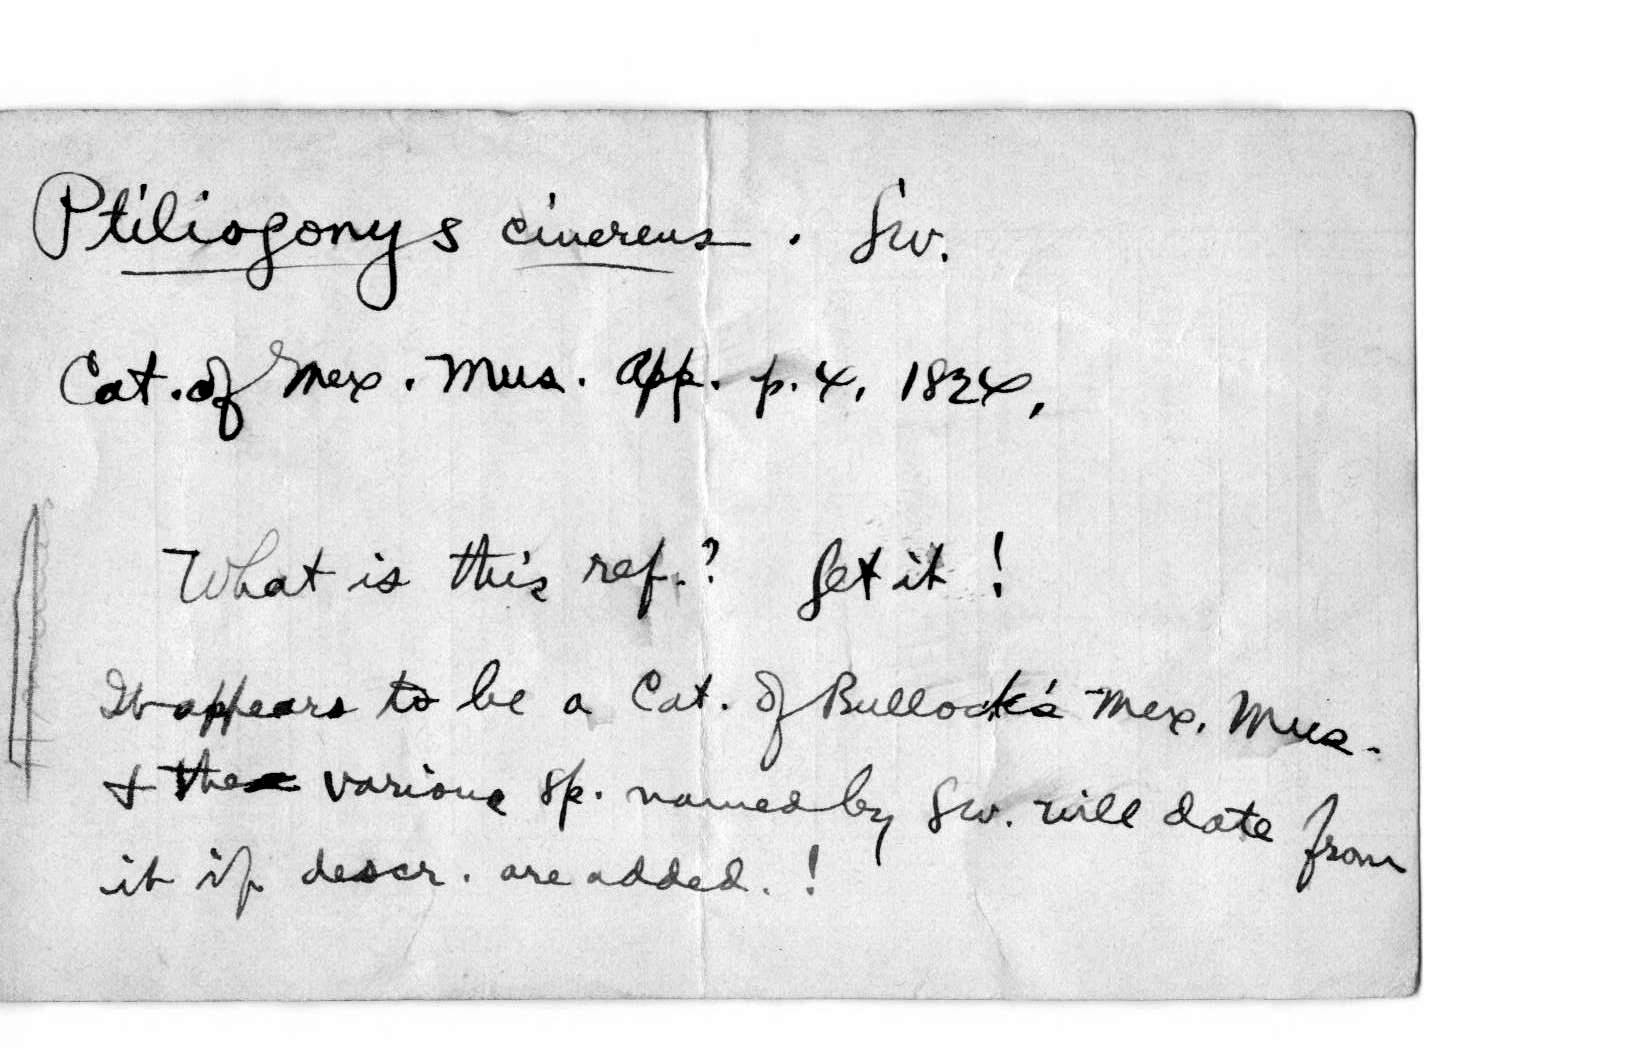 Ptiliogonys cinereus. Sw.
Cat. of Mex. Mus. App. p. 4, 1824,
What is this ref.? Get it!
It appears to be a Cat. of Bullock's Mex. Mus.
& the various sp. named by Sw. will date from
it if descr. are added.!